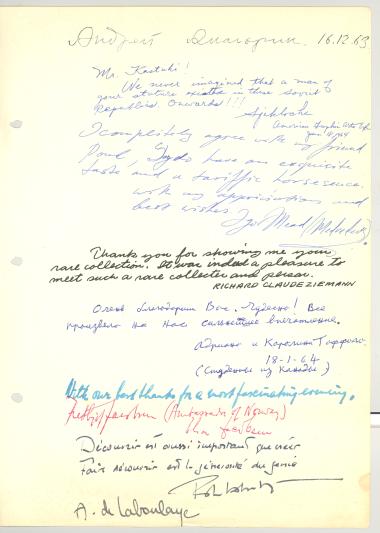 16.12.63
Mr. Kostaki!
We never imagined that a man of
your stature exists in these soviet
Republics. Onwards!!!
I completely agree with my friend
Paul, You have an exquisite
taste and a tariffic horsesence,
with my appriciation and
best wishes
Thank you for showing me your
rare collection. It was indeed a pleasure to
meet such a rare collecter and person.
RICHARD CLAUDE ZIEMANN
Очень благодарим Вас. Чудесно! Все
произвело на нас сильнейшее впечатление.
18-1-64
(Студенты из Канады)
With our best thanks for a most fascinating evening.
(Ambassador of Norway)
Découvrir est aussi important que créer
Faire découvrir est la générosité du génie
A. de Laboulaye